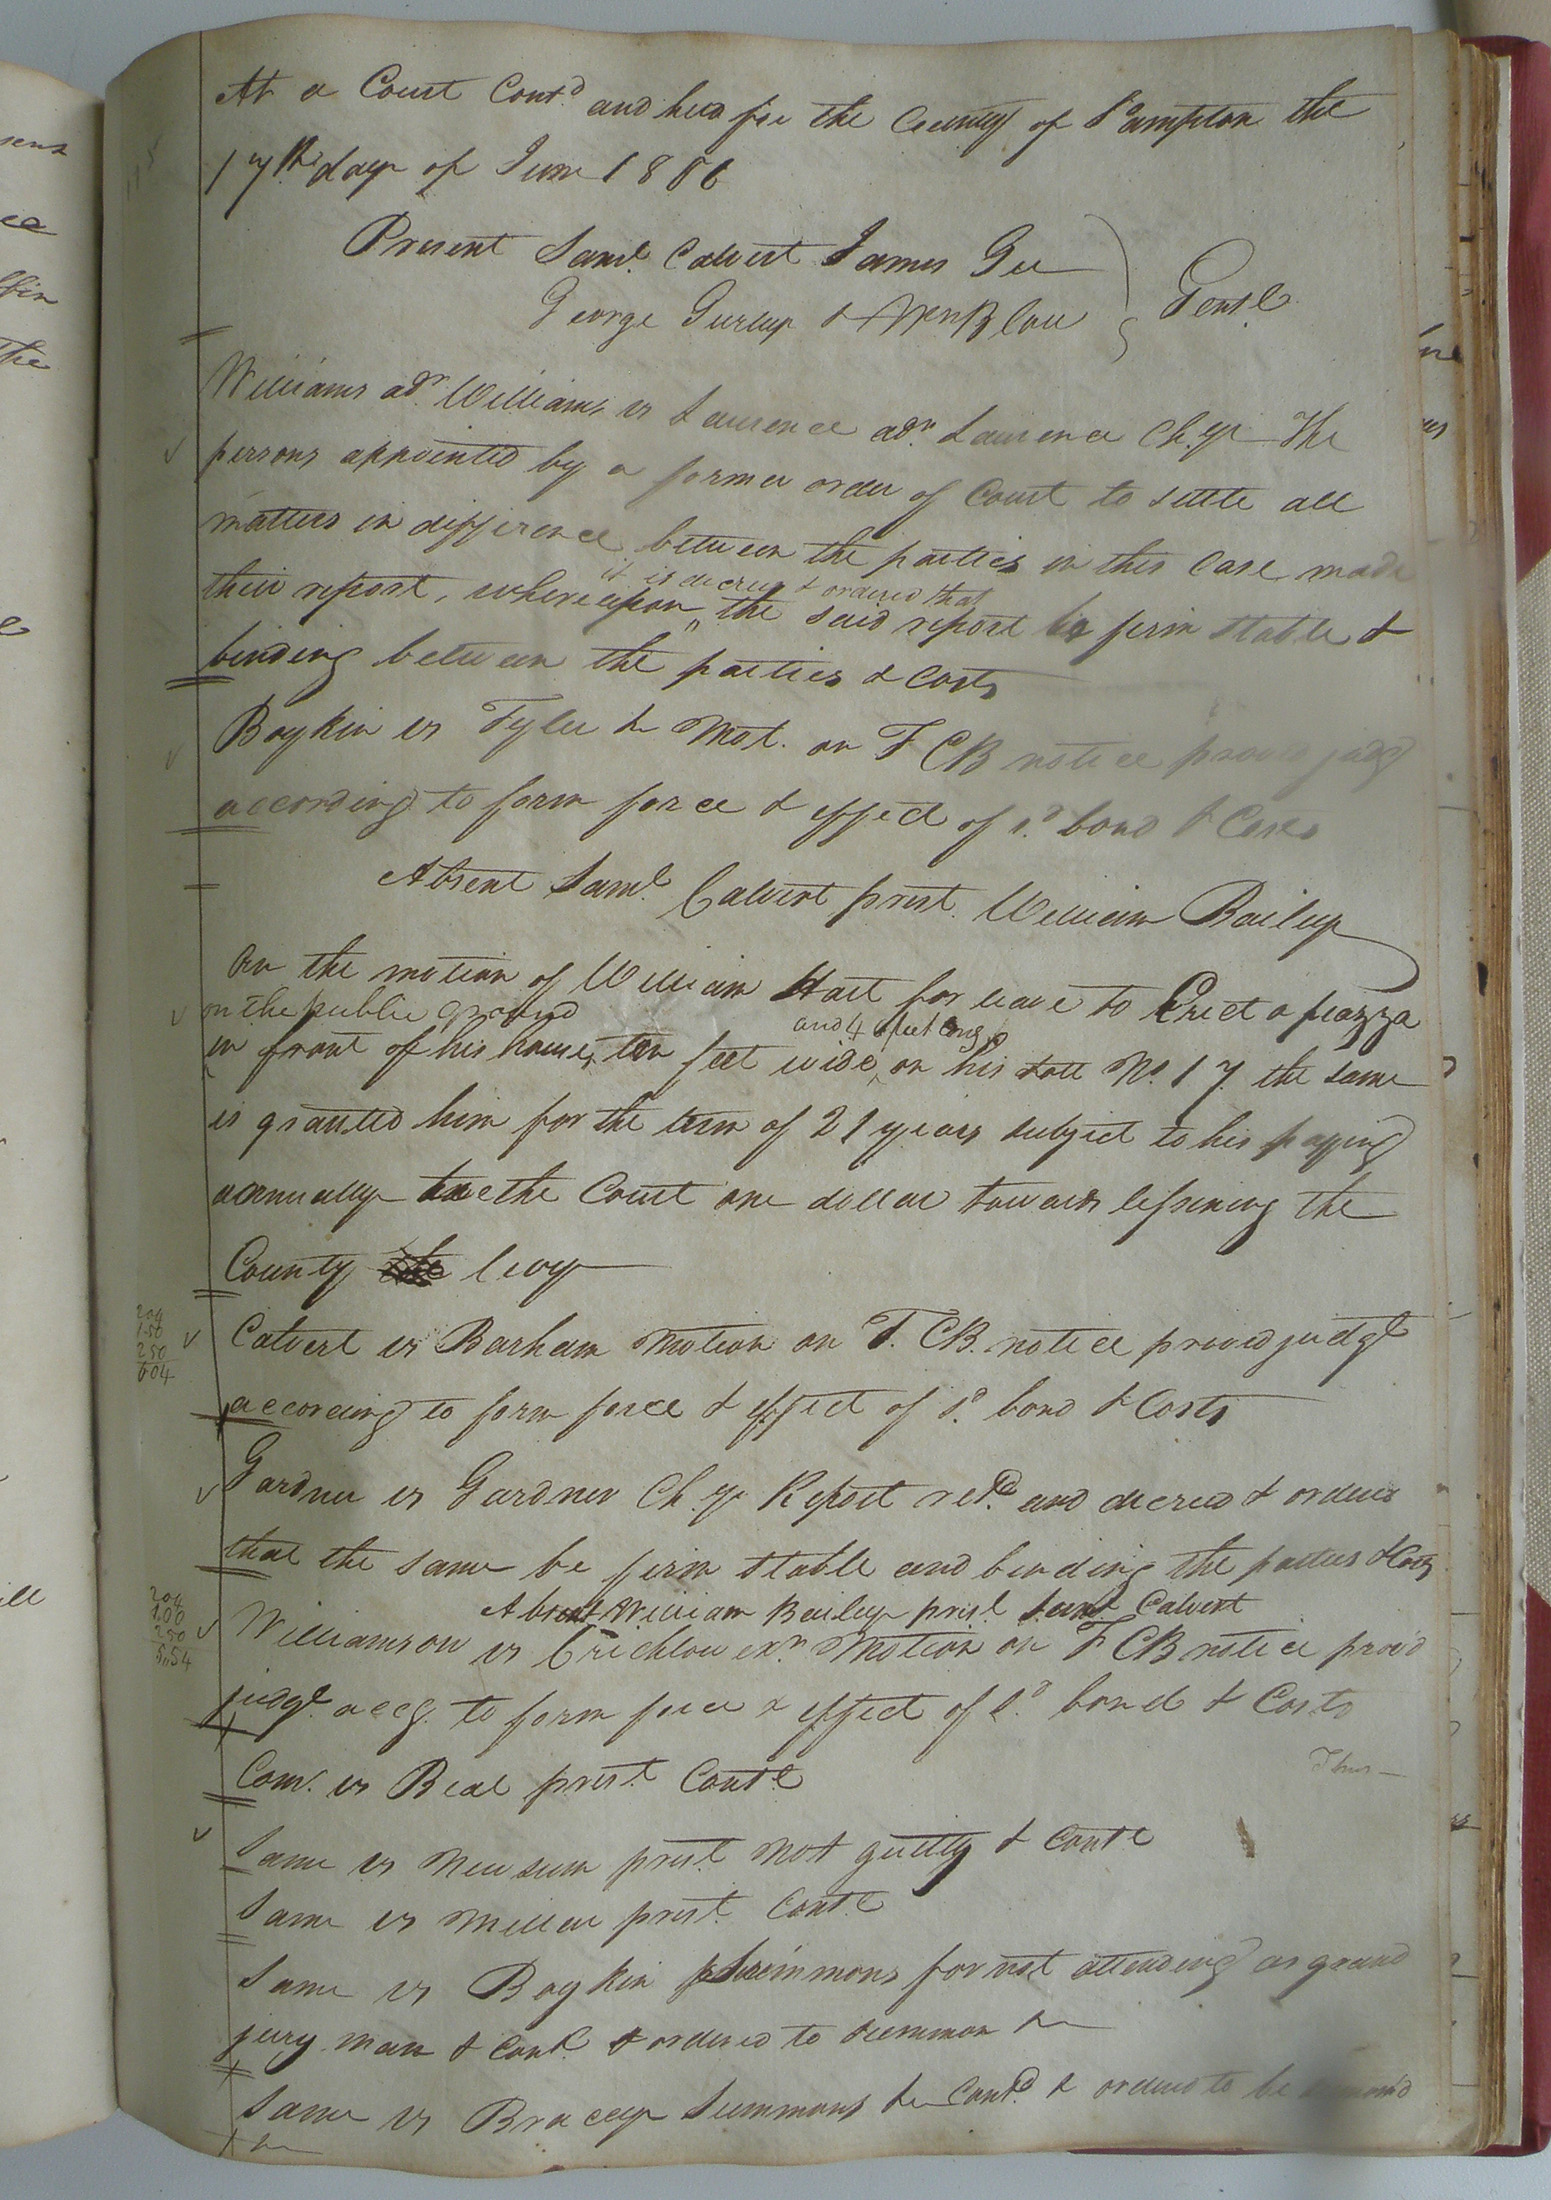 At a Court Contd. and held for the County of S'ampton the
17th. day of June 1806
Present Saml. Calvert James Gee
George Gurley & Wm Blow } Gentl.
Williams adr. Williams vs Laurence adr. Laurence Chy. The
persons appointed by a former order of Court to settle all
matters in difference between the parties in this Case made
it is decreed & ordered that
their report, whereupon the said report be firm stable &
binding between the parties & Costs
Boykin vs Tyler &c Mot. on F C B notice proved judgt
according to form force & effect of sd. bond & Costs
Absent Saml. Calvert prest. William Bailey
On the motion of William Hart for leave to Erect a piazza
on the public ground
and 4 feet long
in front of his house, ten feet wide on his Lott No. 17 the same
is granted him for the term of 21 years subject to his paying
annually to the Court one dollar towards lessening the
County levy
209
1.50
250
604
Calvert vs Barham Motion on F. C B. notice proved judgt
according to form force & effect of sd. bond & Costs
Gardner vs Gardner Chy. Report retd. and decreed & ordered
that the same be firm stable and binding the parties & Costs
Absent William Bailey prest. Saml Calvert
204
1.00
250
5.54
Williamson vs Crichlow exr. Motion on F C B notice prov'd
judgt. accg. to form force & effect of sd. bond & Costs
Com. vs Beal prest. Contd
Same vs Newsum prest. Not guilty & Contd
Same vs Miller prest. Contd
Same vs Boykin Summons for not attending as grand
jury man & Contd. & ordered to summon &c
Same vs Bracey Summons &c Contd. & ordered to be
&c